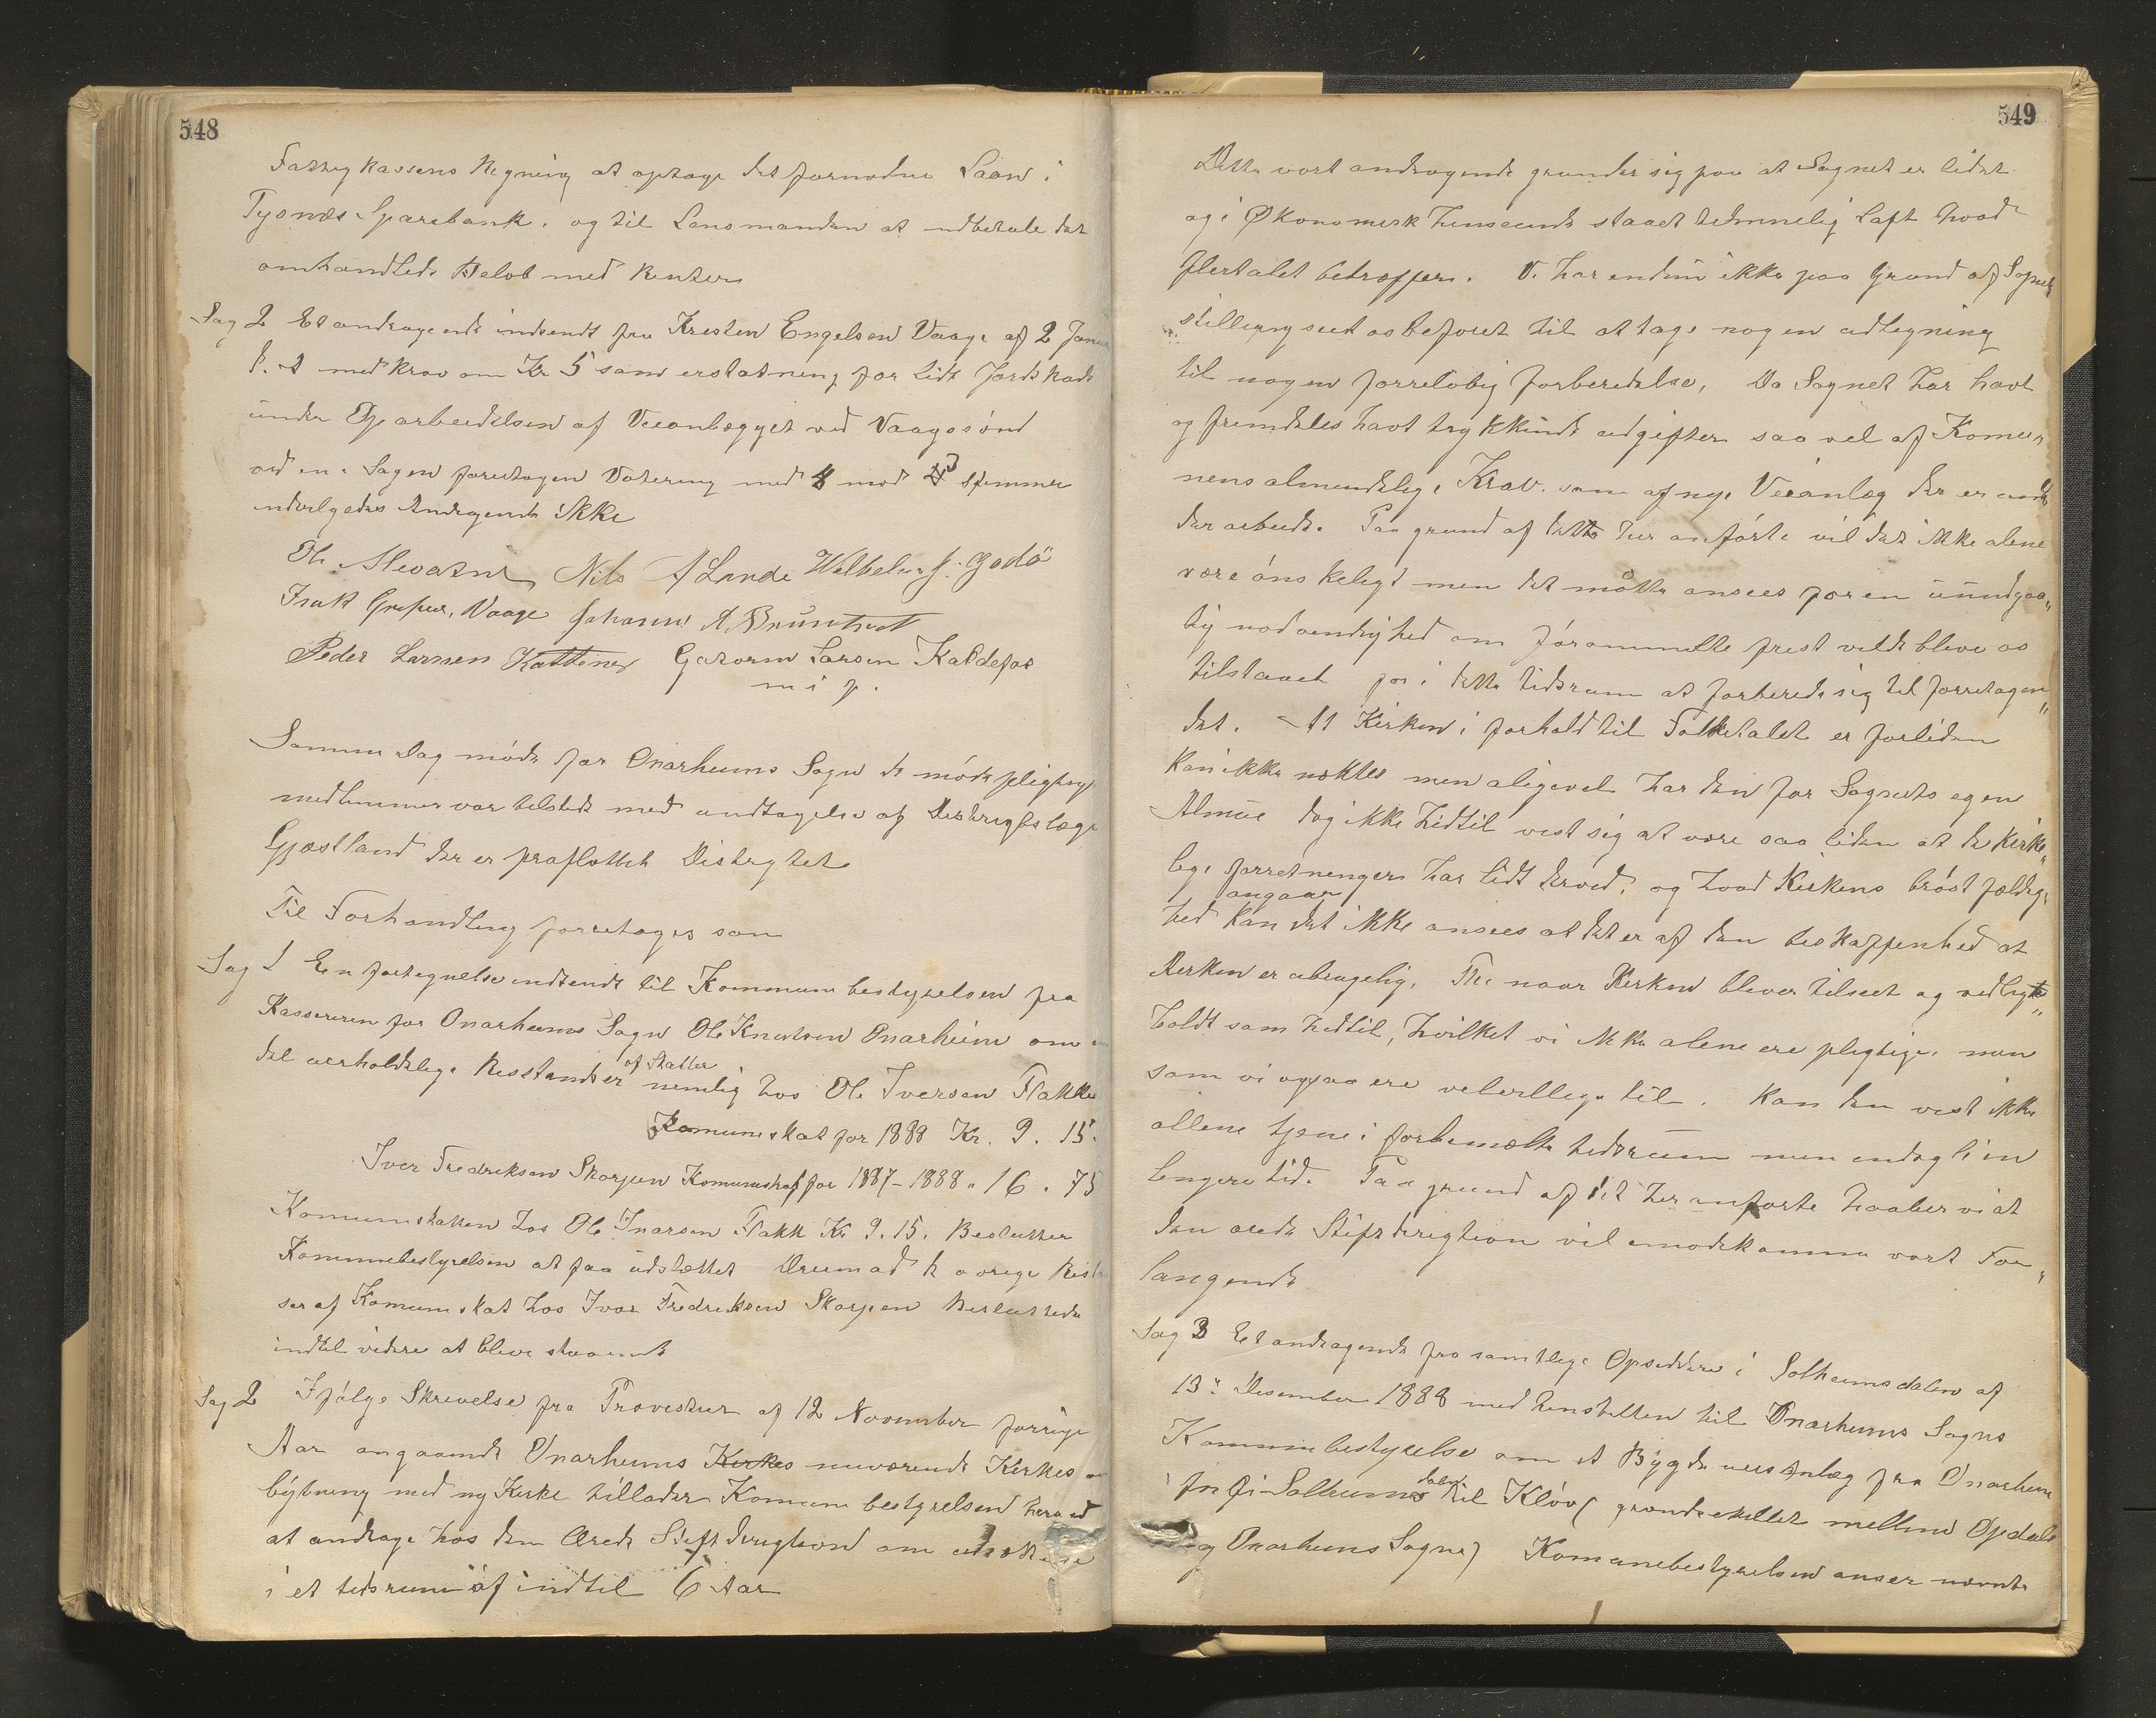 548
Fattigkassens Regning at optage det fornødne Laan i
Tysnæs Sparebank. og til Lensmanden at udbetale det
omhandlede Beløb med Renter
Sag 2 Et andragende indsendt fra Kristen Engelsen Vaage af 2 Janua
d. A med krav om Kr 5 som erstatning for lidt Jordskade
under Oparbeidelsen af Veianlægget ved Vaagesund
ved en i Sagen foretagen Votering med 4 mod 3 Stemmer
indvilgedes Andragende ikke
Ole Nils A Lande J. Godø
Isak Vaage Johannes A.
Peder Larssen Larsen Kaldefos
m i p.
Samme Dag møde for Onarheims Sogn de mødepligtige
medlemmer var tilstede med undtagelse af Distrigtslæge
Gjæstland der er fraflottet Distrigtet
Til Forhandling foretoges som
Sag 1 En fortegnelse indsendt til Kommunebestyrelsen fra
Kassereren for Onarheims Sogn Ole Knutsen Onarheim om en
del uerholdelige Restantser af Skatter nemlig hos Ole Iversen Flakke
Komuneskat for 1888 Kr. 9. 15.
Iver Fredriksen Skorpen Komuneskat for 1887 - 1888 " 16. 75
Komuneskatten hos Ole Ivarsen Flakk Kr 9. 15. Beslutter
Kommunebestyrelsen at faa udslættet Derimod de øvrige Restan
ser af Komuneskat hos Ivar Fredriksen Skorpen Besluttede
indtil videre at blive staaende
Sag 2 Ifølge Skrivelse fra Provsten af 12 November forrige
Aar angaaende Onarheims Kirkes nuværende Kirkes om
bytning med ny Kirke tillader Komunebestyrelsen herved
at andrage hos den Ærede Stiftderigtion om udsættelse
i et tidsrum af indtil 6 Aar
549
Dette vort andragende grunder sig paa at Sognet er lidet
og i Økonomisk henseende staaet temmelig lavt hvad
flertalet betræffer. Vi har endnu ikke paa Grund af Sognets
stilling seet os beføiet til at tage nogen udligning
til nogen forreløbig forberedelse, Da Sognet har havt
og fremdeles havt trykkende udgifter saavel af Komu„
nens almindelige Krav. som af nye Veianlæg der er un„
der arbeide. Paa grund af dette her anførte vil det ikke alene
være ønskeligt men det måtte ansees for en uundgaa„
lig nødvendighed om forommelte frist vilde blive os
tilstaaet for i dette tidsrum at forberede sig til foretagen„
det. - At Kirken i forhold til Folketalet er forliden
kan ikke nektes men aligevel har den for Sognets egen
Almue dog ikke hidtil vist sig at være saa liden at de Kirke„
lige forretninger har lidt derved, og hvad Kirkens brøstfældig„
hed angaar kan det ikke ansees at det er af den beskaffenhed at
Kirken er ubrugelig, Thi naar Kirken bliver tilseet og vedligt„
holdt som hidtil, hvilket vi ikke alene ere pligtige. men
som vi ogsaa ere velvillige til. Kan den vist ikke
allene tjene i forbemelte tidsrum men endog i en
lengere tid. Paa grund af det her anførte haaber vi at
den ærede Stiftderigtion vil imødekomme vort For„
langende
Sag 3 Et andragende fra samtlige Opsiddere i Solheimsdalen af
13de Desember 1888 med henstillen til Onarheims Sogns
Kommunebestyrelse om et Bygdeveisanlæg fra Onarheim
Solheimsdalen til Kløv ( grændseskillet mellem Opdals
og Onarheims Sogne) Komunebestyrelsen anser nævnte